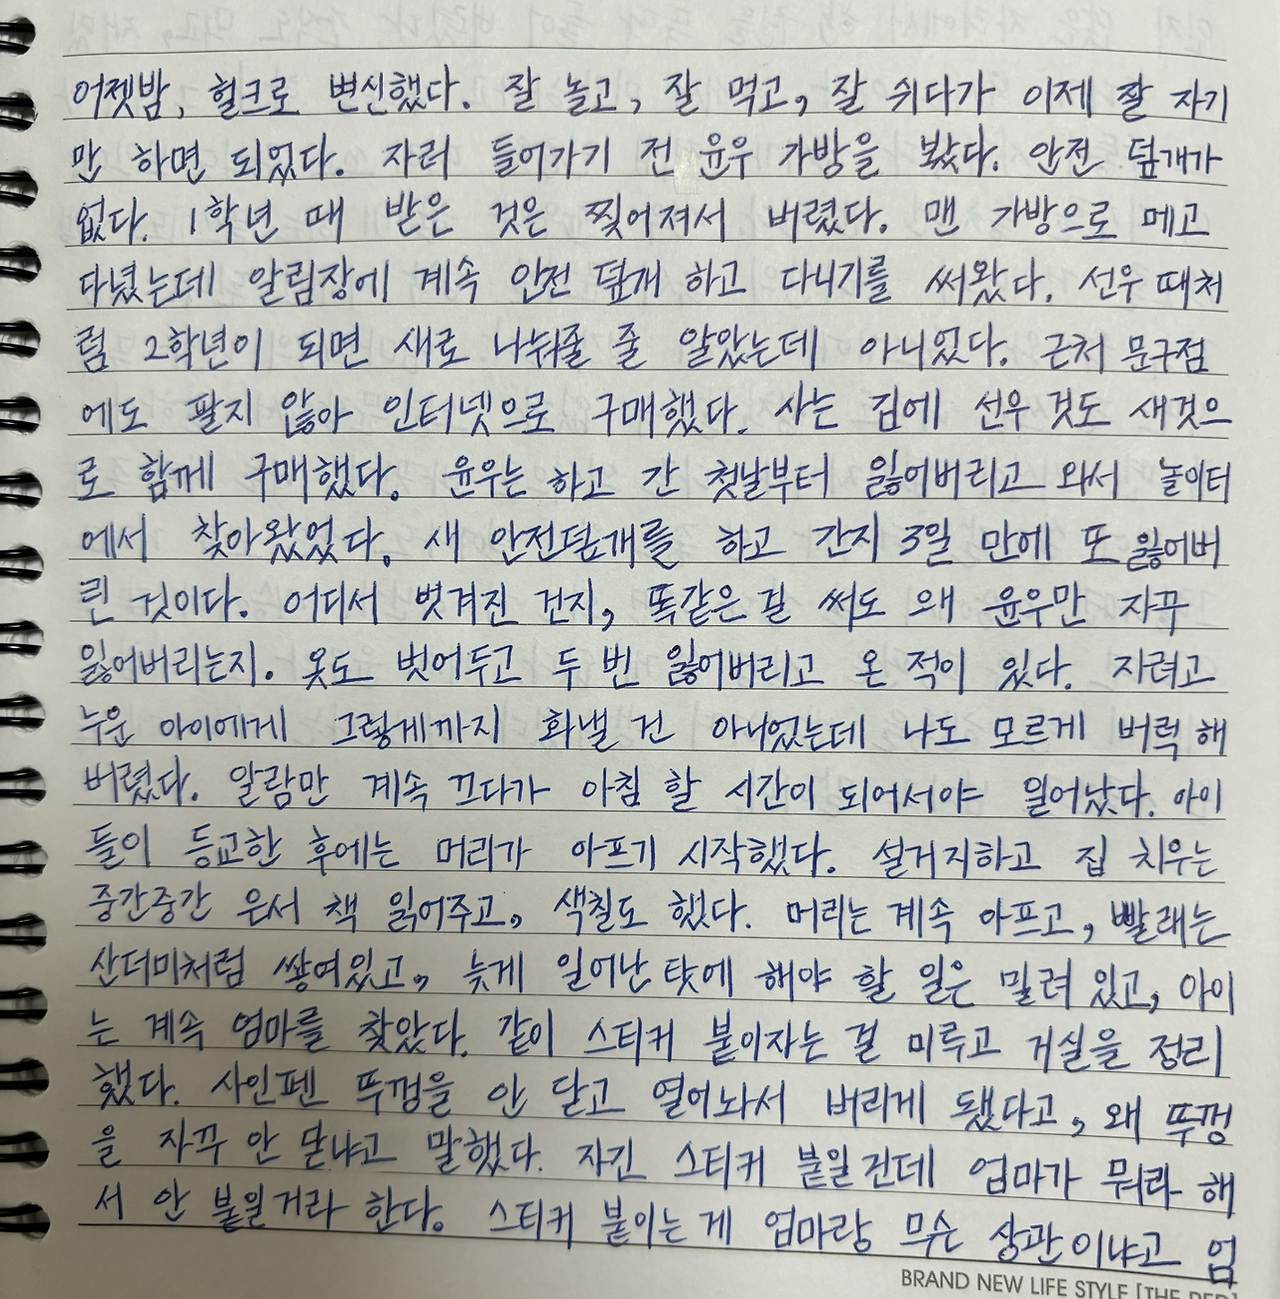 어젯밤, 헐크로 변신했다. 잘 놀고, 잘 먹고, 잘 쉬다가 이제 잘 자기
만 하면 되었다. 자러 들어가기 전 윤우 가방을 봤다. 안전 덮개가
없다. 1학년 때 받은 것은 찢어져서 버렸다. 맨 가방으로 메고
다녔는데 알림장에 계속 안전 덮개 하고 다니기를 써왔다. 선우 때처
럼 2학년이 되면 새로 나눠줄 줄 알았는데 아니었다. 근처 문구점
에도 팔지 않아 인터넷으로 구매했다. 사는 김에 선우 것도 새것으
로 함께 구매했다. 윤우는 하고 간 첫날부터 잃어버리고 와서 놀이터
에서 찾아왔었다. 새 안전덮개를 하고 간지 3일 만에 또 잃어버
린 것이다. 어디서 벗겨진 건지, 똑같은 길 써도 왜 윤우만 자꾸
잃어버리는지. 옷도 벗어두고 두 번 잃어버리고 온 적이 있다. 자려고
누운 아이에게 그렇게까지 화낼 건 아니었는데 나도 모르게 버럭 해
버렸다. 알람만 계속 끄다가 아침 할 시간이 되어서야 일어났다. 아이
들이 등교한 후에는 머리가 아프기 시작했다. 설거지하고 집 치우는
중간중간 은서 책 읽어주고, 색칠도 했다. 머리는 계속 아프고, 빨래는
산더미처럼 쌓여있고, 늦게 일어난 탓에 해야 할 일은 밀려 있고, 아이
는 계속 엄마를 찾았다. 같이 스티커 붙이자는 걸 미루고 거실을 정리
했다. 사인펜 뚜껑을 안 닫고 열어놔서 버리게 됐다고, 왜 뚜껑
을 자꾸 안 닫냐고 말했다. 자긴 스티커 붙일건데 엄마가 뭐라 해
서 안 붙일거라 한다. 스티커 붙이는 게 엄마랑 무슨 상관이냐고 엄
BRAND NEW LIFE STYLE [THE RED]